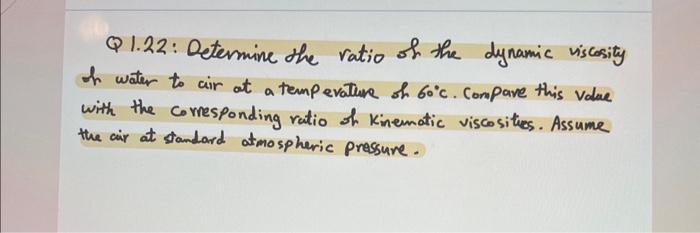 Q 1.22: Determine the ratio of the dynamic viscosity
of water to air at a temperature of 60°c. Compare this value
with the corresponding ratio of kinematic viscosities. Assume
the air at standard atmospheric pressure.